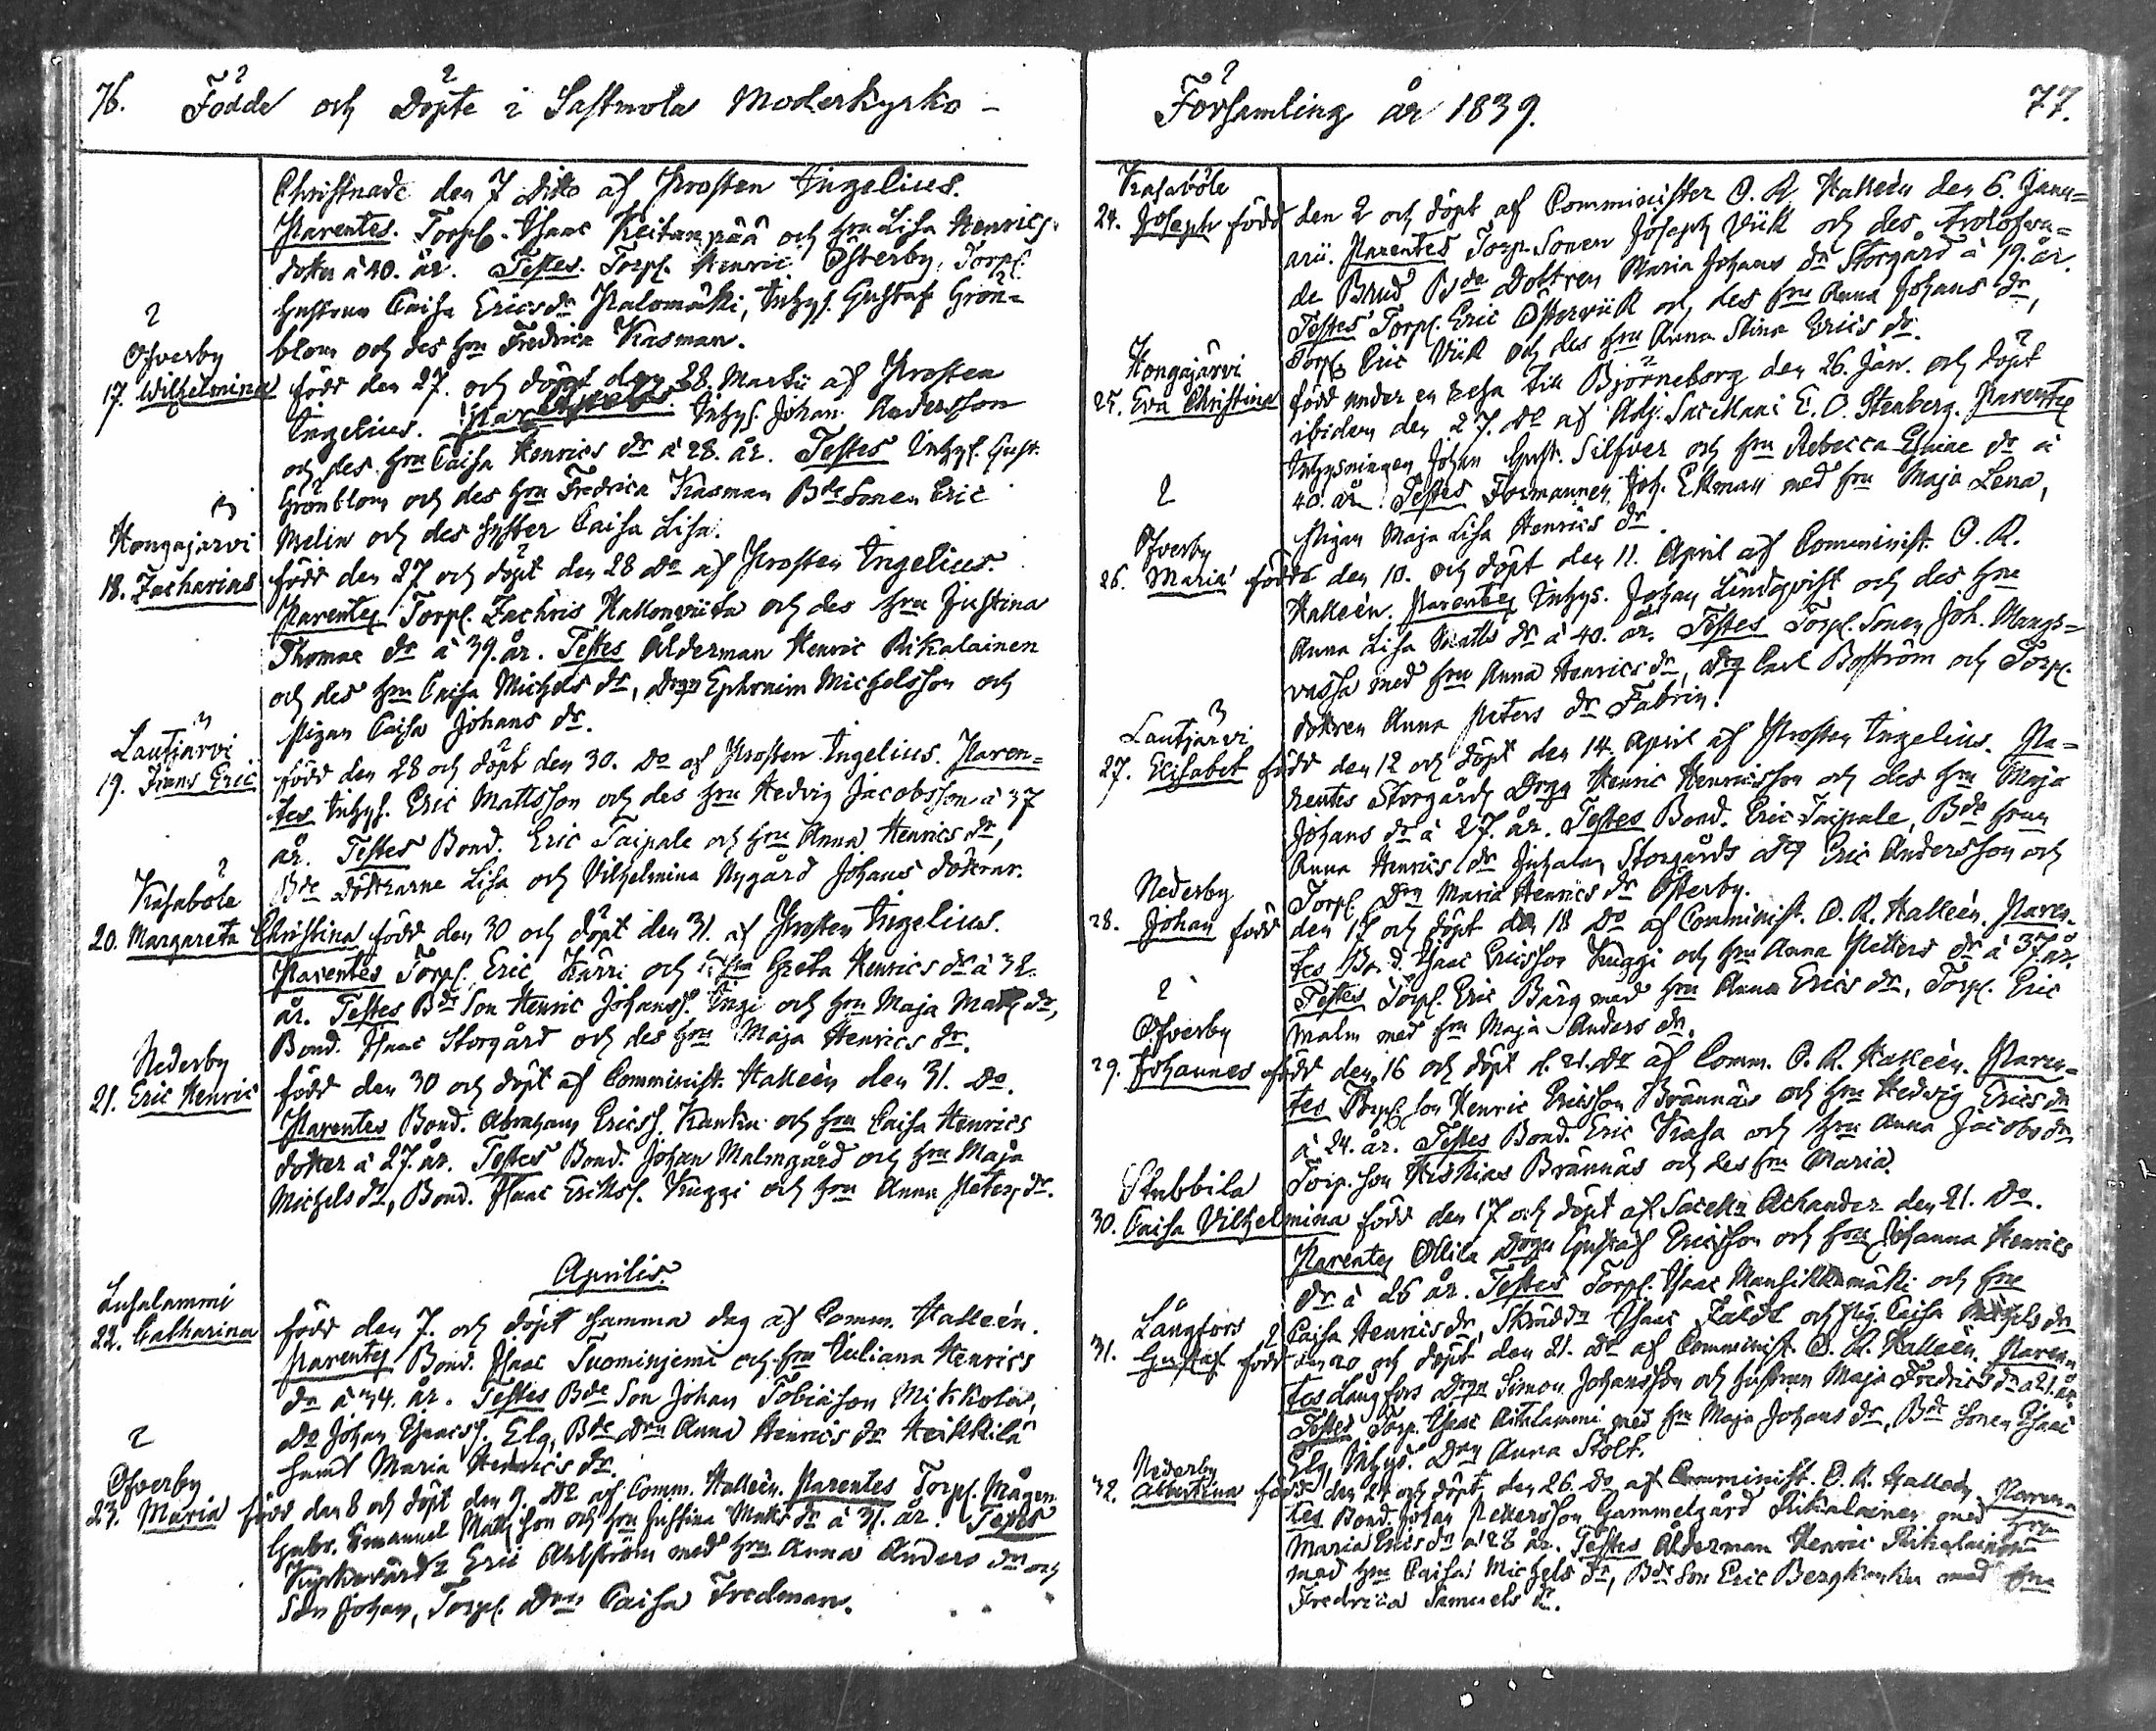 76. Födde och Döpte i Sastmola Moderkyrko-
Christnade den 7 Ditto af Prosten Ingelius.
Parentes. Torp. Isaac Keitanpää och hru Lisa Henrics
dotter à 40. år. Testes. Torp. Henric Österby, Torp.
hustrun Caisa Ericsdr Palomäki, Inhys. Gustaf Grön-
blom och des hru Fredrica Kasman.
2
Ofverby
17. Wilhelmina född den 27. och döpt den 28. Martii af Prosten
Ingelius. Parentes. Inhys. Johan Andersson
och des hru Caisa Henrics dr à 28. år. Testes Inhys. Gust.
Grönblom och des hru Fredrica Kasman Bde Sonen Eric
Melin och des syster Caisa Lisa.
3
Hongajärvi
18. Zacharias född den 27 och döpt den 28 do af Prosten Ingelius.
Parentes. Torp. Zachris Kallonqviita och des hru Justina
Thomae dr à 39. år. Testes Ålderman Henric Rikalainen
och des hru Caisa Michels dr, Drgn Ephraim Michelsson och
Pigan Caisa Johans dr.
3
Lautjärvi
19. Frans Eric född den 28 och döpt den 30. do af Prosten Ingelius. Paren-
tes Inhys. Eric Mattsson och des hru Hedvig Jacobsson à 37
år. Testes Bond. Eric Taipale och hru Anna Henrics dr,
Bde döttrarne Lisa och Vilhelmina Nygård Johans döttrar.
2
Kasaböle
20. Margareta Christina född den 30 och döpt den 31. af Prosten Ingelius.
Parentes Torp. Eric Kärri och hru Greta Henrics dr à 32.
år. Testes Bde Son Henric Johanss. Inge och hru Maja Matts dr,
Bond. Isaac Storgård och des hru Maja Henrics dr.
Nederby
21. Eric Henric född den 30 och döpt af Comminist. Halleén den 31. do.
Parentes Bond. Abraham Ericss. Kanka och hru Caisa Henrics
dotter à 27. år. Testes Bond. Johan Malmgård och hru Maja
Michels dr, Bond. Isaac Erikss. Kuggi och hru Anna Peters dr.
Aprilis.
Lusalammi
22. Catharina född den 7. och döpt samma dag af Comm. Halleén.
Parentes Bond. Isaac Tuominjemi och hru Juliana Henrics
dr à 34. år. Testes Bde Son Johan Tobiasson Mikkola,
do Johan Isaacss. Elg, Bde Drn Anna Henrics dr Heikkilä
samt Maria Henrics dr.
2
Ofverby
23. Maria född den 8 och döpt den 9. do af Comm. Halleén. Parentes Torp. Mågen
Gabr. Emanuel Mattsson och hru Justina Matts dr à 31. år. Testes
Kyrkovärdn Eric Ahlström med hru Anna Anders dr och
Son Johan, Torp. Drn Caisa Fredman.
Församling år 1839. 77.
Kasaböle
24. Joseph född den 2 och döpt af Comminister O. R. Halleén den 6. Janu-
arii. Parentes Torp. Sonen Joseph Viik och des trolofva-
de Brud Bde Dottren Maria Johans dr Storgård à 19. år.
Testes Torp. Eric Österviik och des hru Anna Johans dr,
Torp. Eric Viik och des hru Anna Stina Erics dr.
Hongajärvi
25. Eva Christina född under en resa till Björneborg den 26. Jan. och döpt
ibidem den 27. do af Adj. Sacellani E. O. Stenberg. Parentes
Inhysningen Johan Gust. Silfver och hru Rebecca Eliae dr à
40. år. Testes Formannen Joh. Ekman med hru Maja Lena,
Pigan Maja Lisa Henrics dr.
2
Ofverby
26. Maria född den 10. och döpt den 11. April af Comminist. O. R.
Halleén. Parentes Inhys. Johan Lindqvist och des hru
Anna Lisa Matts dr à 40. år. Testes Torp. Sonen Joh. Mangs-
vassa med hru Anna Henrics dr, Drg Carl Boström och Torp.
dottren Anna Peters dr Fabrin.
3
Lautjärvi
27. Elisabet född den 12 och döpt den 14. April af Prosten Ingelius. Pa-
rentes Storgårds Drgn Henric Henricsson och des hru Maja
Johans dr à 27. år. Testes Bond. Eric Taipale, Bde hrun
Anna Henrics dr Juhala, Storgårds Drg Eric Andersson och
Torp. Drn Maria Henrics dr Österby.
Nederby
28. Johan född den 17 och döpt den 18 do af Comminist. O. R. Halleén. Paren-
tes Bond. Isaac Ericsson Kuggi och hru Anna Petters dr à 37. år.
Testes Torp. Eric Bärg med hru Anna Erics dr, Torp. Eric
Malm med hru Maja Anders dr.
2
Ofverby
29. Johannes född den 16 och döpt d. 21. do af Comm. O. R. Halleén. Paren-
tes Torp. Son Henric Ericsson Brännäs och hru Hedvig Erics dr
à 24. år. Testes Bond. Eric Kasa och hru Anna Jacobs dr
Torp. Son Hiskias Brännäs och des hru Maria.
Stubbila
30. Caisa Vilhelmina född den 17 och döpt af Sacelln Achander den 21. do.
Parentes Ollila Drgn Gustaf Ericsson och hru Johanna Henrics
dr à 26 år. Testes Torp. Isaac Mansikkamäki och hru
Caisa Henrics dr, Skräddn Isaac Täldt och Pig. Caisa Michels dr
Långfors 2
31. Gustaf född den 20 och döpt den 21. do af Comminist. O. R. Halleén. Paren-
tes Långfors Drgn Simon Johansson och hustrun Maja Fredrics dr à 21. år.
Testes Torp. Isaac Ahlalammi med hru Maja Johans dr, Bde Sonen Isaac
Elg, Inhys. Drn Anna Stolt.
Nederby
32. Albertina född den 24 och döpt den 26. do af Comminist. O. R. Halleén. Paren-
tes Bond. Johan Pettersson Gammelgård Rikalainen med hru
Maria Erics dr à 28 år. Testes Ålderman Henric Rikalainen
med hru Caisa Michels dr, Bde Son Eric Bergkanka med hru
Fredrica Samuels dr.